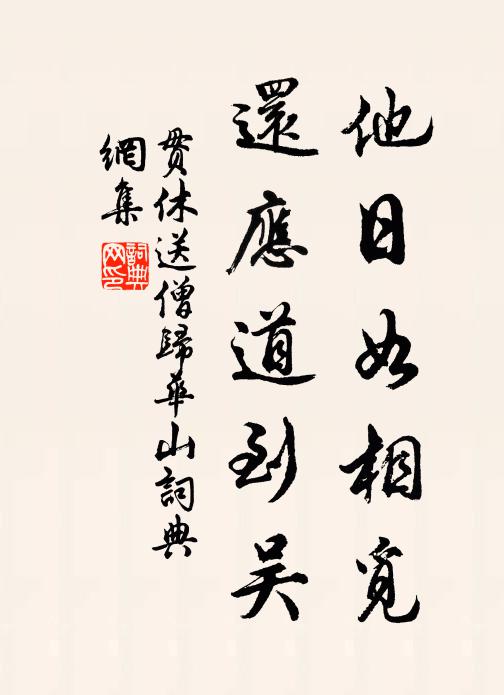 他日如相覓
還應道到吴
貫休送僧歸華山詞典
網集
詞典網印